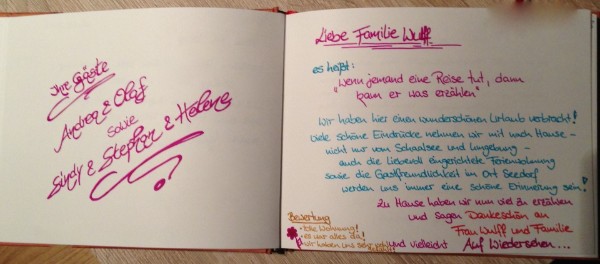 Ihre Gäste
Andrea & Olaf
sowie
Sindy & Stephan & Helene
Liebe Familie Wulff.
es heißt:
"Wenn jemand eine Reise tut, dann
kann er was erzählen"
Wir haben hier einen wunderschönen Urlaub verbracht!
Viele schöne Eindrücke nehmen wir mit nach Hause -
nicht nur vom Schaalsee und Umgebung -
auch die liebevoll eingerichtete Ferienwohnung
sowie die Gastfreundlichkeit im Ort Seedorf
werden uns immer eine schöne Erinnerung sein!
Zu Hause haben wir nun viel zu erzählen
und sagen Dankeschön an
Frau Wulff und Familie
und vielleicht Auf Wiedersehen...
Bewertung
- tolle Wohnung!
es war alles da!
wir haben uns sehr wohl
gefühlt!